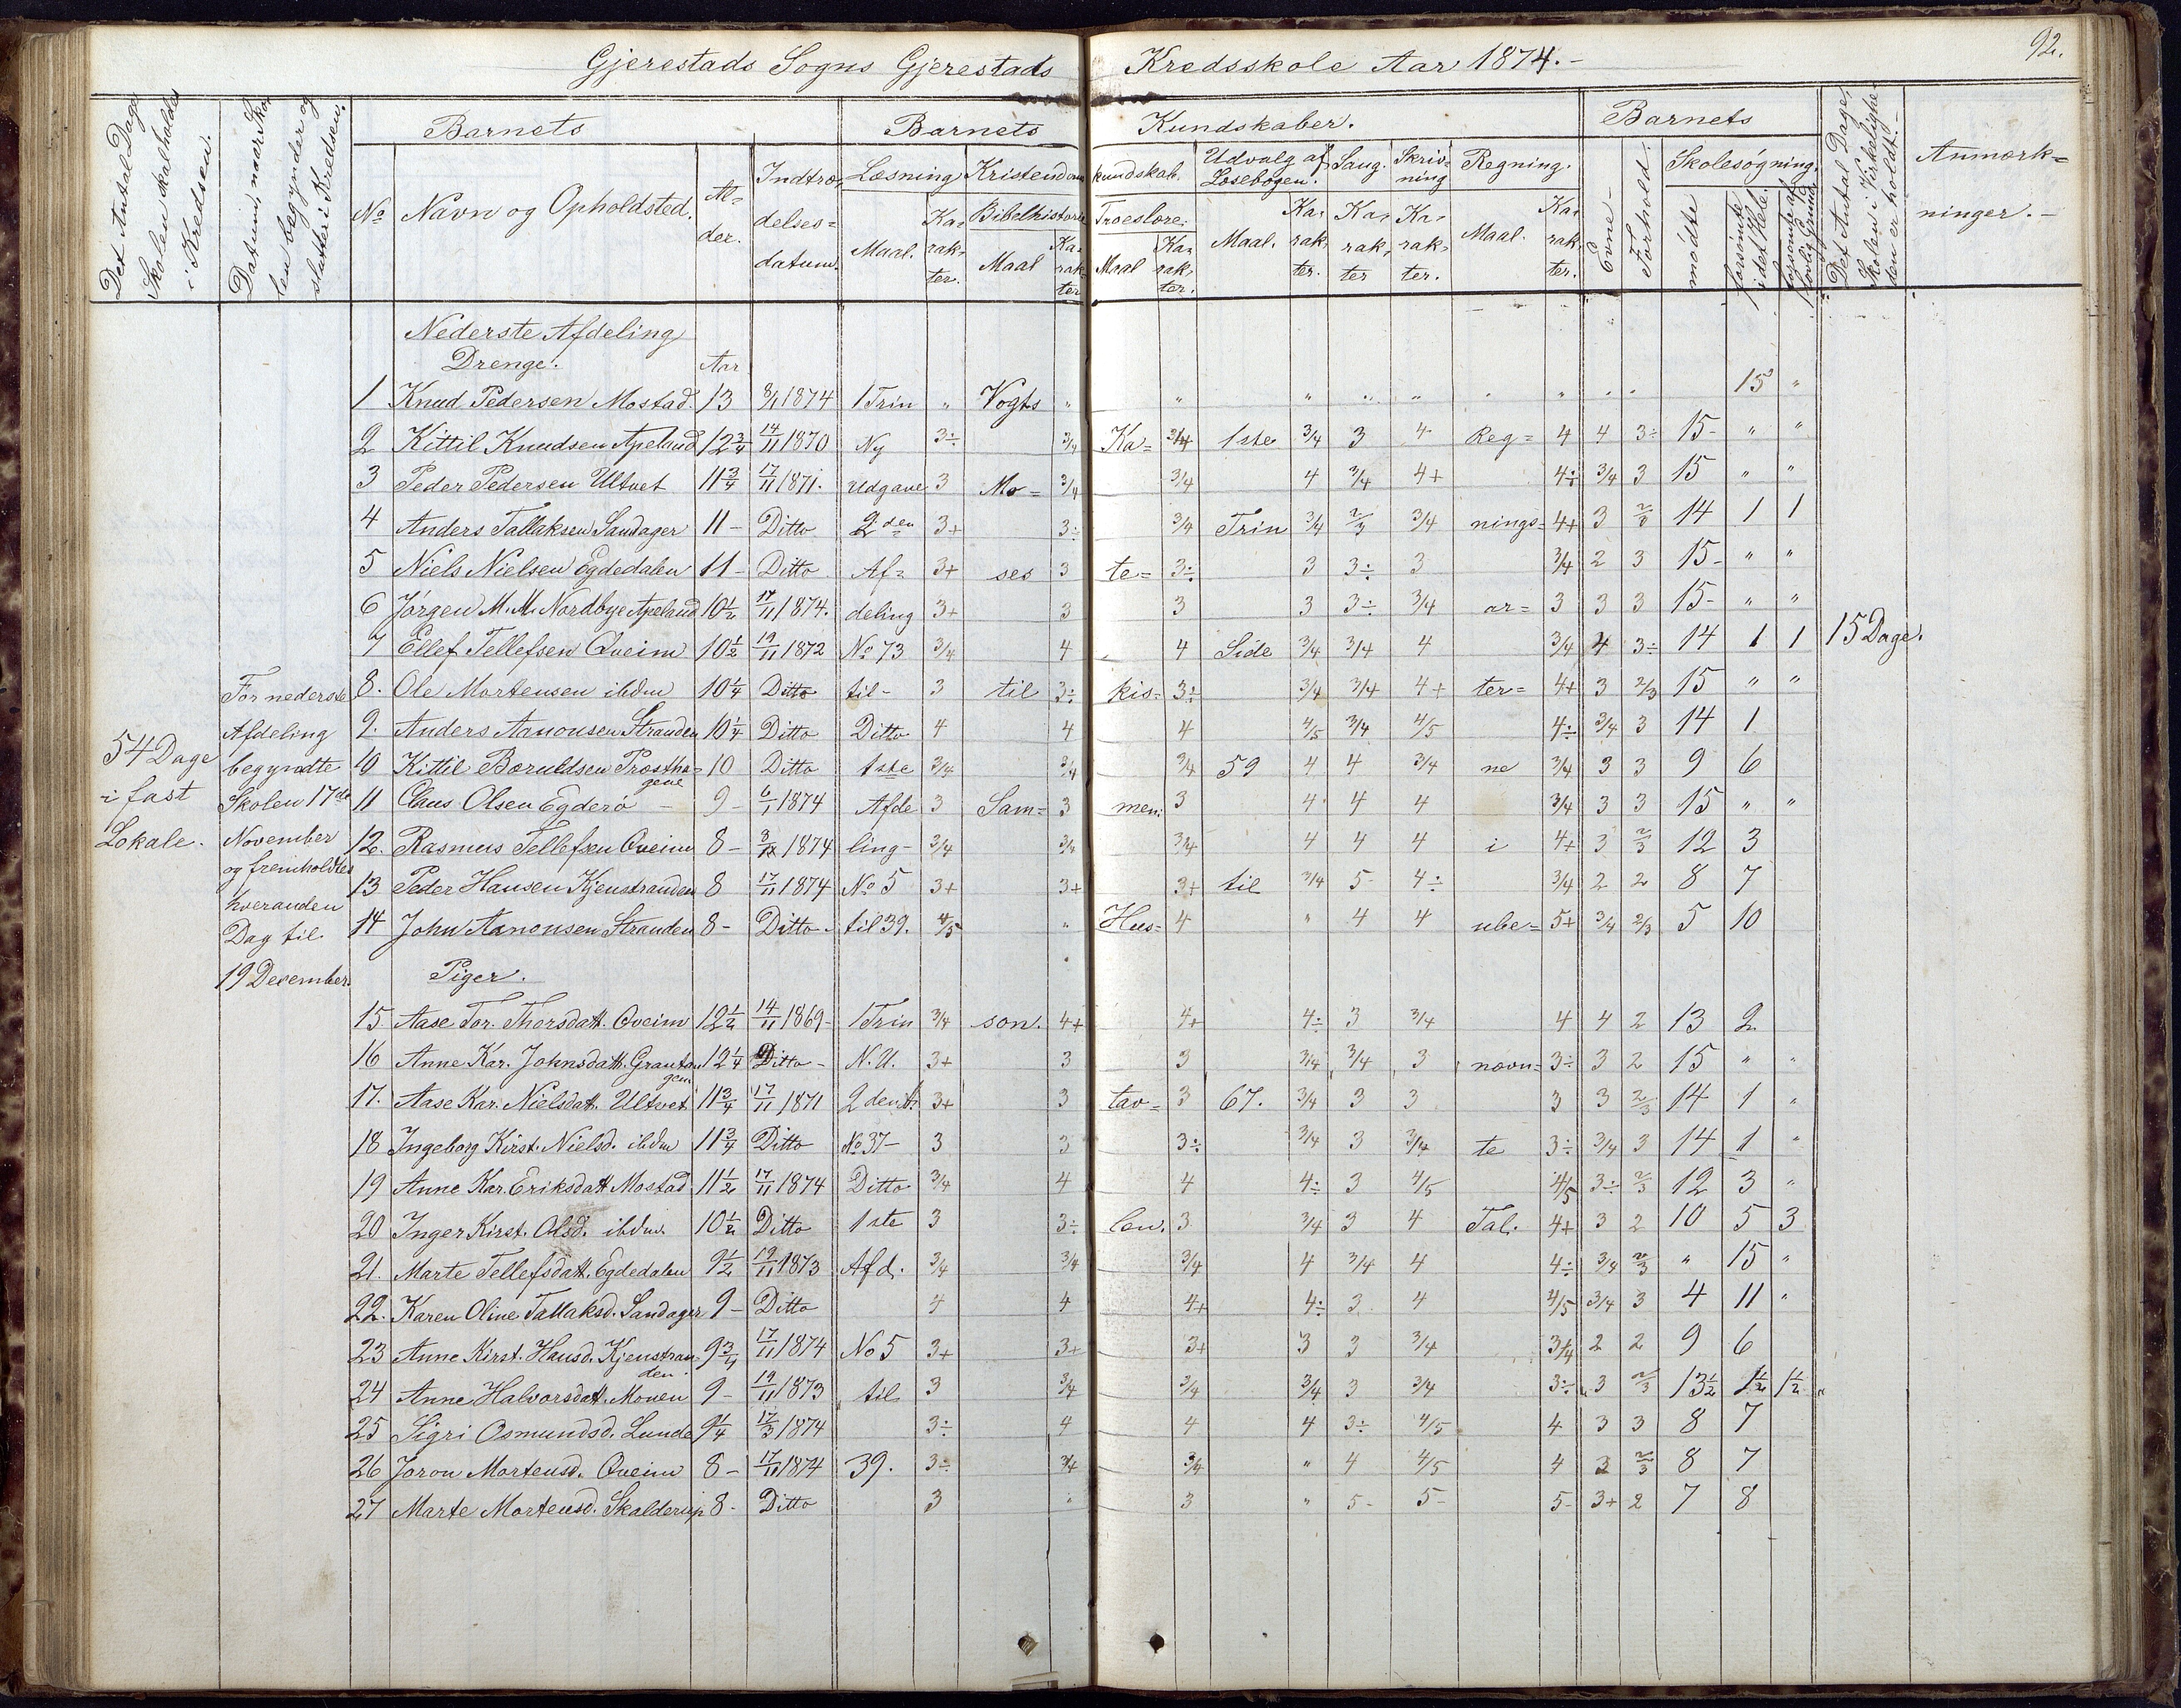 92.
Gjerestads Sogns Gjerestads Kredsskole Aar 1874.-
Det Antal Dage Skolen skal holdes i Kredsen.
Datum, naar Skolen begynder og slutter i Kredsen.
Barnets
Barnets Kundskaber.
Barnets
Det Antal Dage, Skolen i Virkeligheden er holdt.-
Anmærkninger.-
No Navn og Opholdsted. Alder. Indtrædelsesdatum.
Læsning Kristendomskundskab. Udvalg af Læsebogen. Sang. Skrivning Regning.
Evne- Forhold. Skolesøgning.
Maal. Karakter. Bibelhistorie Maal Karakter Troeslære. Maal Karakter. Maal. Karakter. Karakter Karakter. Maal. Karakter.
mødte forsømte i det Hele. forsømte af lovlig Grund.
Nederste Afdeling
Drenge. Aar
1 Knud Pedersen Mostad. 13 8/1 1874 1 Trin " Vogts " " " " " " " " " 15 "
2 Kittil Knudsen Apeland 12 3/4 14/11 1870 Ny 3÷ 3/4 Ka= 3/4 1ste 3/4 3 4 Reg= 4 4 3÷ 15- " "
3 Peder Pedersen Ultvet 11 3/4 17/11 1871. Udgave 3 Mo= 3/4 3/4 4 3/4 4+ 4÷ 3/4 3 15 " "
4 Anders Tallaksen Sandager 11- Ditto 2den 3+ 3÷ 3/4 Trin 3/4 2/3 3/4 nings= 4+ 3 2/3 14 1 1
5 Niels Nielsen Egdedalen 11- Ditto Af= 3+ ses 3 te= 3÷ 3 3÷ 3 3/4 2 3 15- " "
6 Jørgen M. M. Nordbye Apeland 10 1/2 17/11 1874. deling 3+ 3 3 3 3÷ 3/4 ar= 3 3 3 15- " "
7 Ellef Tellefsen Qveim 10 1/2 19/11 1872 No 73 3/4 4 4 Side 3/4 3/4 4 3/4 4 3÷ 14 1 1 15 Dage.
8. Ole Mortensen ibdm 10 1/4 Ditto til- 3 til 3÷ kis= 3÷ 3/4 3/4 4+ ter= 4+ 3 2/3 15 " "
9. Anders Aanonsen Stranden 10 1/4 Ditto Ditto 4 4 4 4/5 3/4 4/5 4÷ 3/4 3 14 1
10 Kittil Bæruldsen Prosthagene 10 Ditto 1ste 3/4 3/4 3/4 59 4 4 3/4 ne 3/4 3 3 9 6
11 Claus Olsen Egderø - 9- 6/1 1874 Afde 3 Sam= 3 men: 3 4 4 4 3/4 3 3 15 " "
12. Rasmus Tellefsen Qveim 8- 1874 ling- 3/4 3/4 3/4 4 4 4 i 4+ 3 2/3 12 3
13 Peder Hansen Kjenstranden 8 17/11 1874 No 5 3+ 3+ 3+ til 3/4 5- 4÷ 3/4 2 2 8 7
14 John Aanonsen Stranden 8- Ditto- til 39. 4/5 " Hus= 4 " 4 4 ube= 5+ 3/4 2/3 5 10
54 Dage
i fast
Lokale.
For nederste
Afdeling
begyndte
Skolen 17de
November
og fremholdtes
hveranden
Dag til
19 December.
Piger.
15 Aase Tor. Thorsdatt. Qveim 12 1/2 14/11 1869- 1 Trin 3/4 son. 4+ 4+ 4÷ 3 3/4 4 4 2 13 2
16 Anne Kar. Johnsdatt. Grautangen 12 1/4 Ditto- N. U. 3+ 3 3 3/4 3/4 3 nævn= 3÷ 3 2 15 " "
17. Aase Kar. Nielsdatt. Ultvet 11 3/4 17/11 1871 3+ 3 tav= 3 67. 3/4 3 3 3 3 2/3 14 1 "
18 Ingeborg Kirst. Nielsd. ibdm 11 3/4 Ditto No 37- 3 3 3÷ 3/4 3 3/4 te 3÷ 3/4 3 14 1 "
19 Anne Kar. Eriksdatt Mostad 11 1/2 17/11 1874 Ditto 3/4 4 4 4÷ 3 4/5 4/5 3÷ 2/3 12 3 "
20 Inger Kirst. Olsd. ibdm. 10 1/2 Ditto 1ste 3 3÷ len. 3 3/4 3 4 Tal. 4+ 3 2 10 5 3
21. Marte Tellefsdatt. Egdedalen 9 1/2 19/11 1873 Afd. 3/4 3/4 3/4 4 3/4 4 4÷ 3/4 2/3 " 15 "
22. Karen Oline Tallaksd. Sandager 9- Ditto 4 4 4+ 4÷ 3 4 4/5 3/4 3 4 11 "
23 Anne Kirst. Hansd. Kjenstranden. 9 3/4 17/11 1874 No 5 3+ 3+ 3+ 3 3 3/4 3/4 2 2 9 6
24 Anne Halvorsdatt. Monen 9- 19/11 1873 til 3 3/4 3/4 3/4 3 3/4 3÷ 3 2/3 13 1/2 1 1/2 1 1/2 "
25 Sigri Osmundsd. Lunde 9 1/4 17/3 1874 3÷ 4 4 4 3÷ 4/5 4 3 3 8 7
26 Joron Mortensd. Qveim 8- 17/11 1874 39. 3÷ 3/4 3/4 " 4 4/5 4 3 2/3 8 7
27 Marte Mortensd. Skalderup 8- Ditto 3 " 3 " 5- 5- 5- 3+ 2 7 8